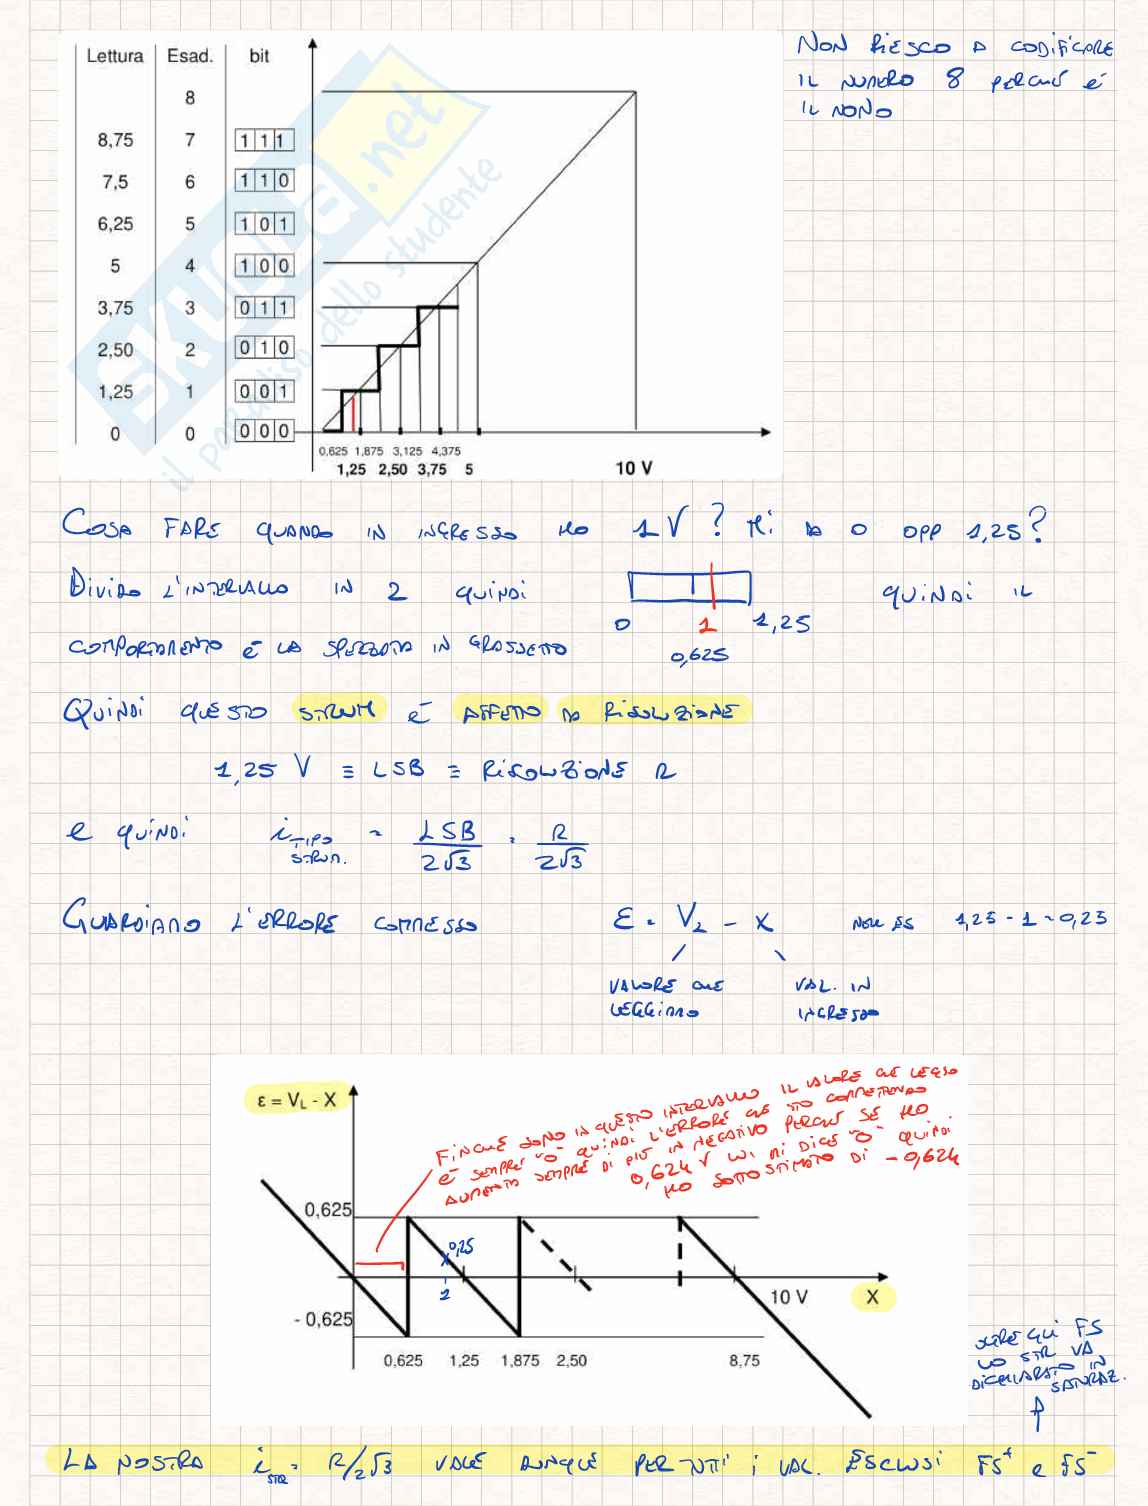 Lettura Esad. bit
8
8,75 7 1 1 1
7,5 6 1 1 0
6,25 5 1 0 1
5 4 1 0 0
3,75 3 0 1 1
2,50 2 0 1 0
1,25 1 0 0 1
0 0 0 0 0
0,625 1,875 3,125 4,375
1,25 2,50 3,75 5 10 V
SKUOLA.net
il paradiso dello studente
NON RIESCO A CODIFICARE
IL NUMERO 8 PERCHÉ È
IL NONO
COSA FARE QUANDO IN INGRESSO HO 1 V ? Mi DA 0 OPP 1,25?
DIVIDO L'INTERVALLO IN 2 QUINDI
0 1 1,25
0,625
QUINDI IL
COMPORTAMENTO È LA SPEZZATA IN GRASSETTO
QUINDI QUESTO STRUM È AFFETTO DA RISOLUZIONE
1,25 V ≡ LSB ≡ RISOLUZIONE R
e QUINDI i TIPO STRUM. = LSB / 2√3 = R / 2√3
GUARDIAMO L'ERRORE COMMESSO
ε = VL - X
NELL'ES 1,25 - 1 = 0,25
VALORE CHE LEGGIAMO
VAL. IN INGRESSO
ε = VL - X
FINCHÉ SONO IN QUESTO INTERVALLO IL VALORE CHE LEGGO
È SEMPRE "0" QUINDI L'ERRORE CHE STO COMMETTENDO
AUMENTA SEMPRE DI PIÙ IN NEGATIVO PERCHÉ SE HO
0,624 V LUI MI DICE "0" QUINDI
HO SOTTOSTIMATO DI -0,624
0,625
0,25
1
- 0,625
10 V X
0,625 1,25 1,875 2,50 8,75
OLTRE QUI FS
LO STR VA
DICHIARATO IN
SATURAZ.
LA NOSTRA i STR = R/2√3 VALE DUNQUE PER TUTTI i VAL. ESCLUSI FS⁺ e FS⁻